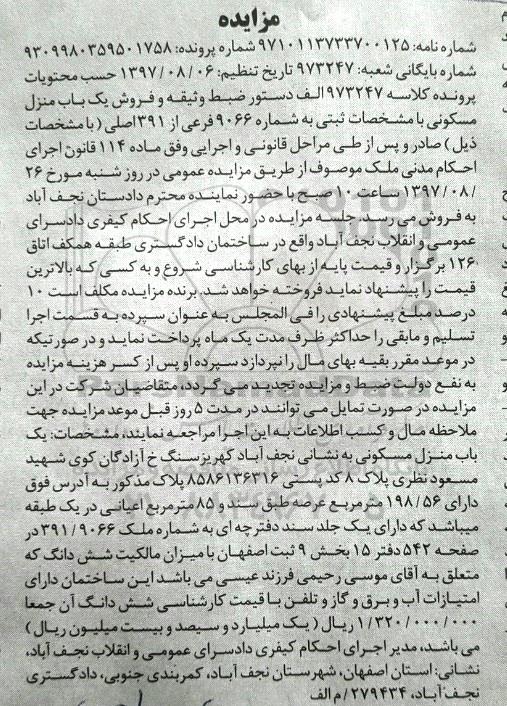 مزایده
شماره نامه: ۹۷۱۰۱۱۳۷۳۳۷۰۰۱۲۵ شماره پرونده: ۹۳۰۹۹۸۰۳۵۹۵۰۱۷۵۸
شماره بایگانی شعبه: ۹۷۳۲۴۷ تاریخ تنظیم: ۱۳۹۷/۰۸/۰۶ حسب محتویات
پرونده کلاسه ۹۷۳۲۴۷ الف دستور ضبط وثیقه و فروش یک باب منزل
مسکونی با مشخصات ثبتی به شماره ۹۰۶۶ فرعی از ۳۹۱ اصلی ( با مشخصات
ذیل ) صادر و پس از طی مراحل قانونی و اجرایی وفق ماده ۱۱۴ قانون اجرای
احکام مدنی ملک موصوف از طریق مزایده عمومی در روز شنبه مورخ ۲۶
/۱۳۹۷/۰۸ ساعت ۱۰ صبح با حضور نماینده محترم دادستان نجف آباد
به فروش می رسد. جلسه مزایده در محل اجرای احکام کیفری دادسرای
عمومی و انقلاب نجف آباد واقع در ساختمان دادگستری طبقه همکف اتاق
۱۲۶ برگزار و قیمت پایه از بهای کارشناسی شروع و به کسی که بالاترین
قیمت را پیشنهاد نماید فروخته خواهد شد. برنده مزایده مکلف است ۱۰
درصد مبلغ پیشنهادی را فی المجلس به عنوان سپرده به قسمت اجرا
تسلیم و مابقی را حداکثر ظرف مدت یک ماه پرداخت نماید و در صورتیکه
در موعد مقرر بقیه بهای مال را نپردازد سپرده او پس از کسر هزینه مزایده
به نفع دولت ضبط و مزایده تجدید می گردد، متقاضیان شرکت در این
مزایده در صورت تمایل می توانند در مدت ۵ روز قبل موعد مزایده جهت
ملاحظه مال و کسب اطلاعات به این اجرا مراجعه نمایند، مشخصات: یک
باب منزل مسکونی به نشانی نجف آباد کهریزسنگ خ آزادگان کوی شهید
مسعود نظری پلاک ۸ کد پستی ۸۵۸۶۱۳۶۳۱۶ پلاک مذکور به آدرس فوق
دارای ۱۹۸/۵۶ مترمربع عرصه طبق سند و ۸۵ مترمربع اعیانی در یک طبقه
میباشد که دارای یک جلد سند دفترچه ای به شماره ملک ۳۹۱/۹۰۶۶ در
صفحه ۵۴۲ دفتر ۱۵ بخش ۹ ثبت اصفهان با میزان مالکیت شش دانگ که
متعلق به آقای موسی رحیمی فرزند عیسی می باشد این ساختمان دارای
امتیازات آب و برق و گاز و تلفن با قیمت کارشناسی شش دانگ آن جمعا
۱/۳۲۰/۰۰۰/۰۰۰ ریال ( یک میلیارد و سیصد و بیست میلیون ریال )
می باشد، مدیر اجرای احکام کیفری دادسرای عمومی و انقلاب نجف آباد،
نشانی: استان اصفهان، شهرستان نجف آباد، کمربندی جنوبی، دادگستری
نجف آباد، ۲۷۹۴۳۴/م الف